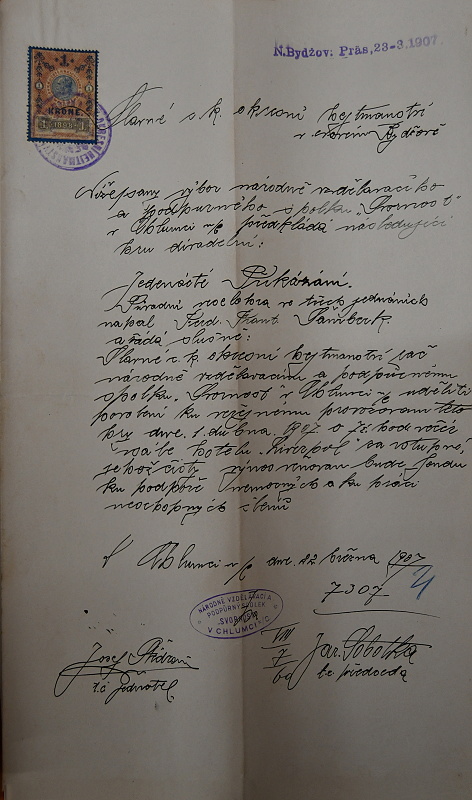 N.Bydžov: Präs, 23-3.1907.
1
KRONE
1898
Slavné c. k. okresní hejtmanství
v Novém Bydžově
Nížepsaný výbor národně vzdělavacího
a podpurného spolku „Svornost"
v Chlumci n/c předkládá následující
hru divadelní:
Jedenácté Přikázání.
Původní veselohra ve třech jednáních
napsal Ferd. Frant. Šamberk.
a žádá slušně:
Slavné c. k. okresní hejtmanství rač
národně vzdělavacímu a podpůrnému
spolku Svornost v Chlumci n/c uděliti
povolení ku veřejnému provozování této
hry dne 1. dubna 1907 o hod večer
v sále hotelu za vstupné,
jehož čistý výnos věnován bude fondu
ku podpoře nemocných a ku práci
neschopných členů
V Chlumci n/c dne 22 března 1907
7307
NÁRODNĚ VZDĚLAVACÍ A
PODPŮRNÝ SPOLEK
SVORNOST
V CHLUMCI N/C
VIII
7
Josef
t. č. jednatel
Jar. Sobotka
t. č. předseda